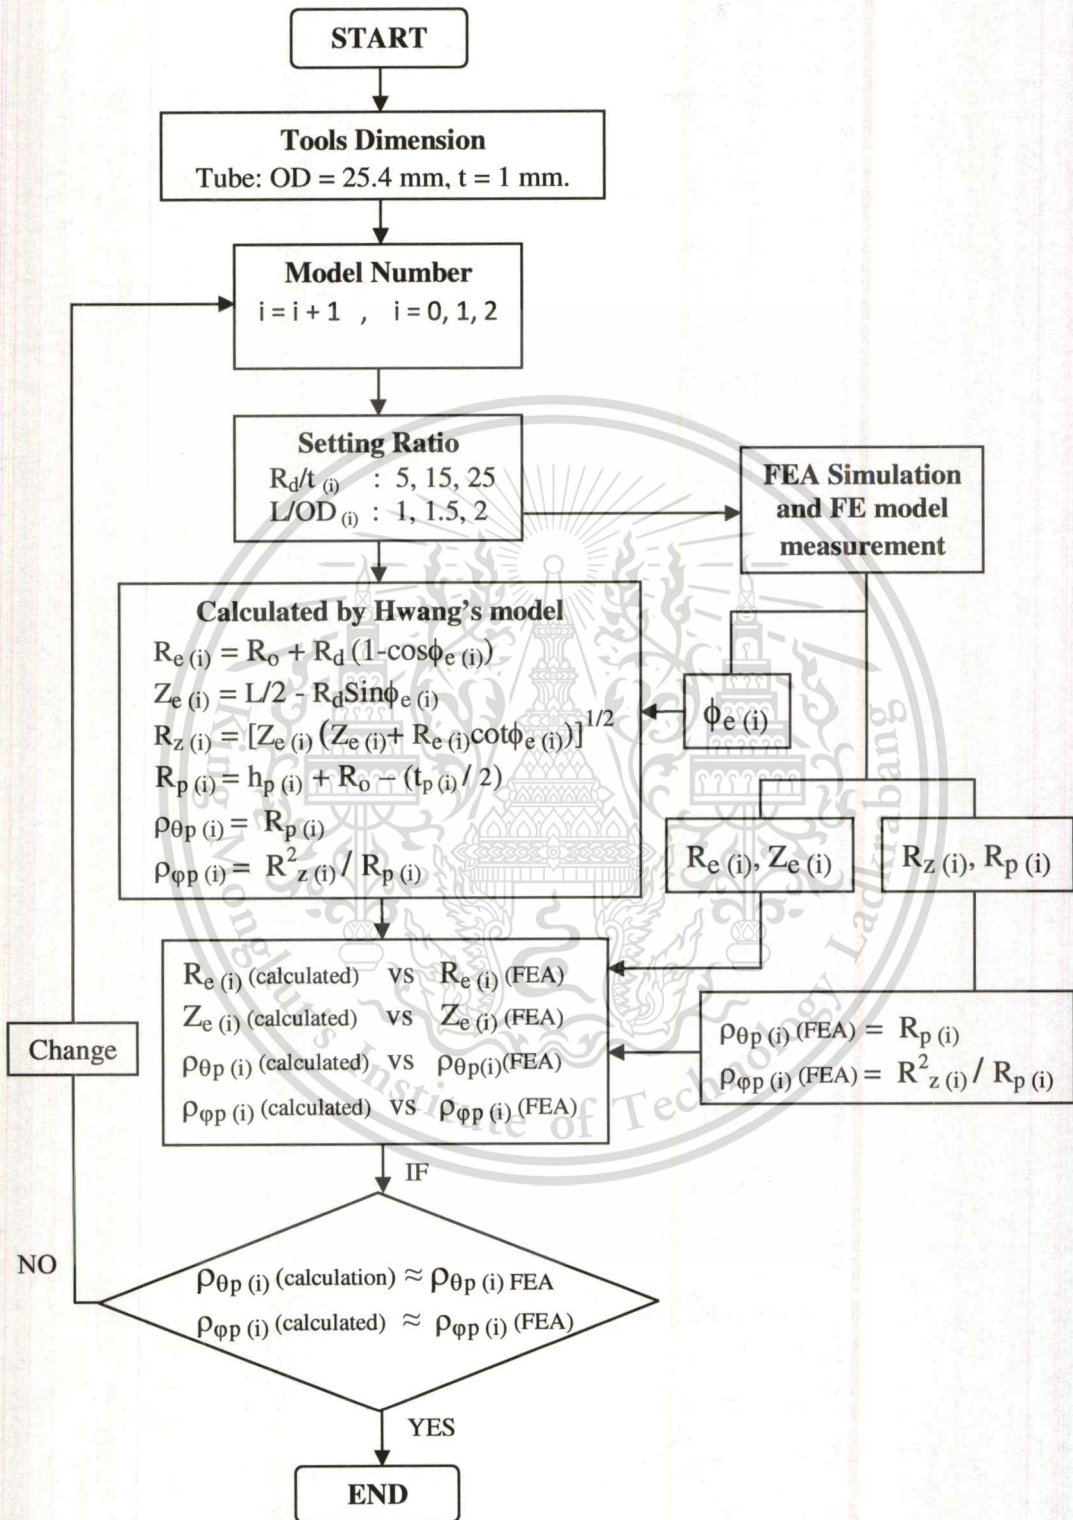 START
Tools Dimension
Tube: OD = 25.4 mm, t = 1 mm.
Model Number
i = i + 1 , i = 0, 1, 2
Setting Ratio
R_d/t (i) : 5, 15, 25
L/OD (i) : 1, 1.5, 2
FEA Simulation
and FE model
measurement
Calculated by Hwang's model
R_e (i) = R_o + R_d (1-cosϕ_e (i))
Z_e (i) = L/2 - R_dSinϕ_e (i)
R_z (i) = [Z_e (i) (Z_e (i)+ R_e (i)cotϕ_e (i))]^1/2
R_p (i) = h_p (i) + R_o – (t_p (i) / 2)
ρ_θp (i) = R_p (i)
ρ_φp (i) = R^2_z (i) / R_p (i)
ϕ_e (i)
R_e (i), Z_e (i)
R_z (i), R_p (i)
R_e (i) (calculated) vs R_e (i) (FEA)
Z_e (i) (calculated) vs Z_e (i) (FEA)
ρ_θp (i) (calculated) vs ρ_θp(i)(FEA)
ρ_φp (i) (calculated) vs ρ_φp (i) (FEA)
ρ_θp (i) (FEA) = R_p (i)
ρ_φp (i) (FEA) = R^2_z (i) / R_p (i)
Change
IF
NO
ρ_θp (i) (calculation) ≈ ρ_θp (i) FEA
ρ_φp (i) (calculated) ≈ ρ_φp (i) (FEA)
YES
END
King Mongkut's Institute of Technology Ladkrabang